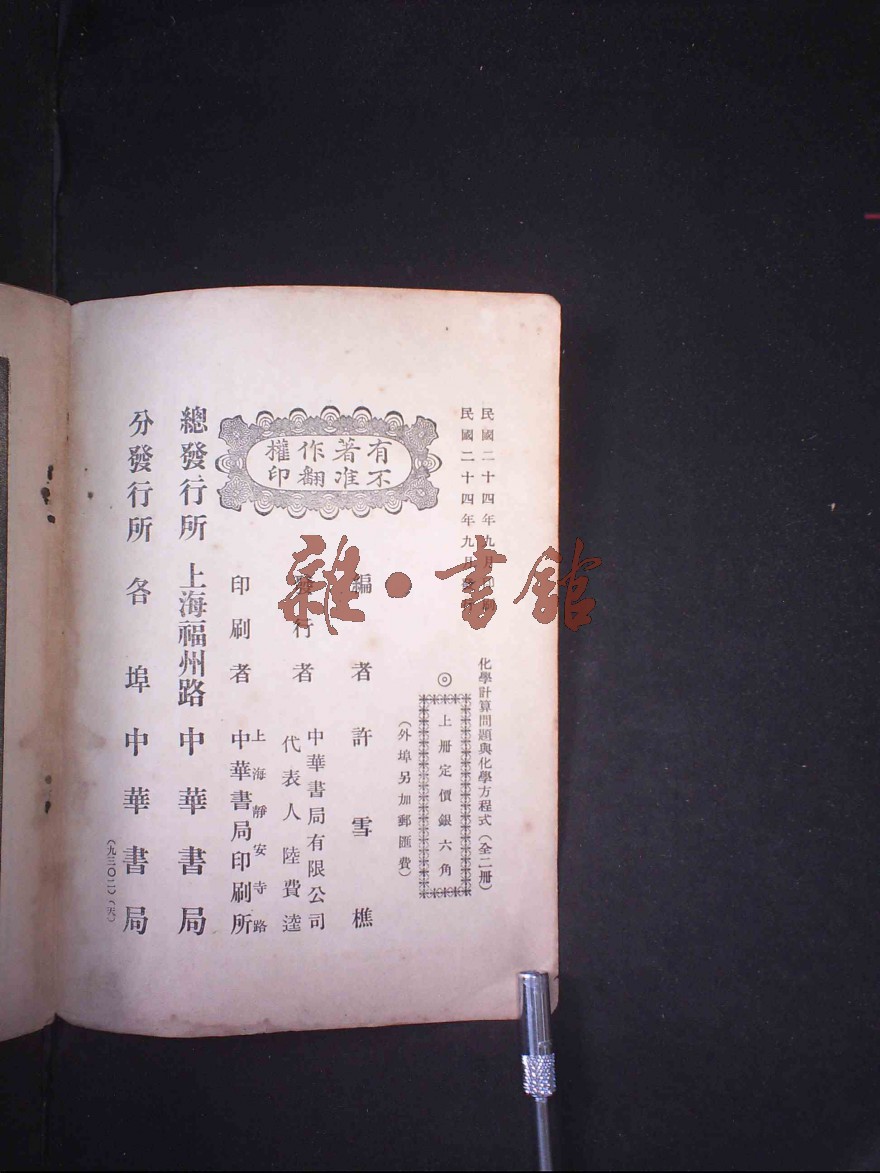 民國二十四年九月印刷
民國二十四年九月發行
化學計算問題與化學方程式（全二册）
◎上册定價銀六角
（外埠另加郵匯費）
有著作權
不准翻印
編者 許雪樵
發行者 中華書局有限公司
代表人陸費逵
印刷者 上海靜安寺路
中華書局印刷所
總發行所 上海福州路 中華書局
分發行所 各埠 中華書局
（九三〇二）（天）
雜·書館